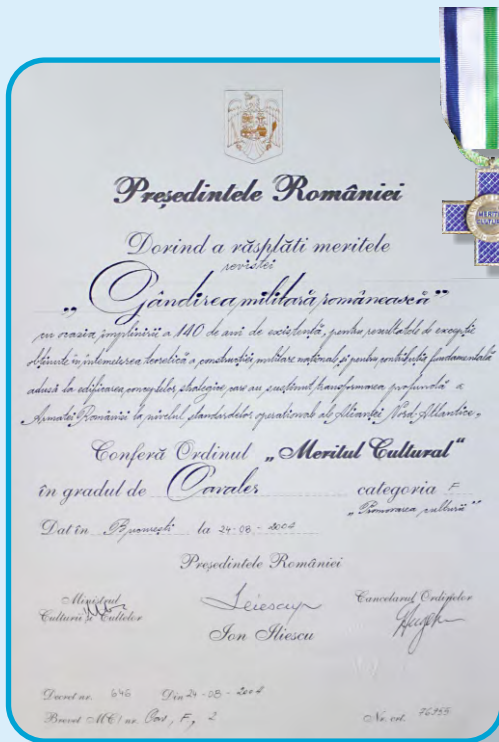 Președintele României
Dorind a răsplăti meritele
revistei
„Gândirea militară românească”
cu ocazia împlinirii a 140 de ani de existență, pentru rezultatele de excepție
obținute în întemeierea teoretică a construcției militare naționale și pentru contribuția fundamentală
adusă la edificarea conceptelor strategice care au susținut transformarea profundă a
Armatei României la nivelul standardelor operaționale ale Alianței Nord-Atlantice,
Conferă Ordinul „Meritul Cultural”
în gradul de Cavaler categoria F
„Promovarea culturii”
Dat în București la 24-08-2004
Președintele României
Ministrul
Culturii și Cultelor
Cancelarul Ordinelor
Ion Iliescu
Decret nr. 646 Din 24-08-2004
Brevet MC/nr. Cav, F, 2
Nr. crt. 76955
MERITUL